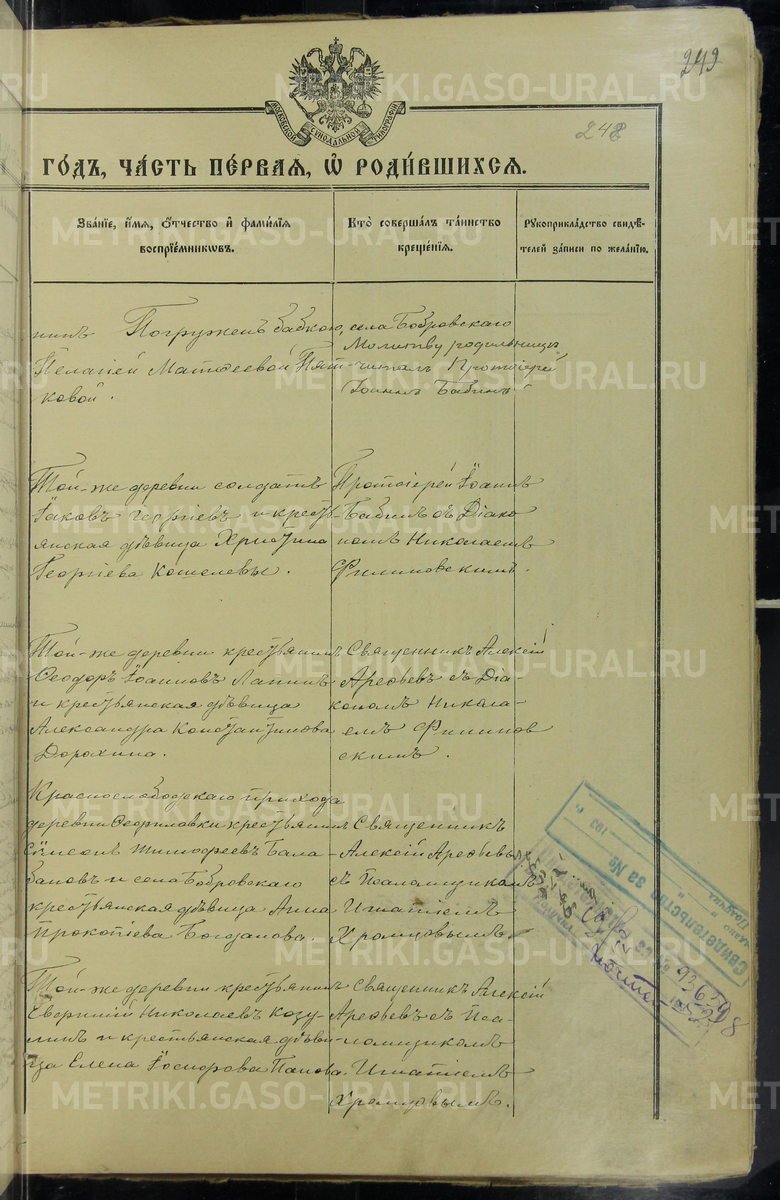 249
248
МОСКОВСКОЙ СѴНОДАЛЬНОЙ ТИПОГРАФІИ
ГО́ДЪ, ЧА́СТЬ ПЕ́РВАЯ, Ѡ҆ РОДИ́ВШИХСЯ.
Зва́нїе, и҆́мѧ, ѻ҆́тчество и҆ фами́лїѧ воспрїе́мникѡвъ.
Кто̀ соверша́лъ та́инство креще́нїѧ.
Рꙋкоприкла́дство свидѣ́телей за́писи по жела́нїю.
нинъ Погруженъ бабкою
Пелагіей Матѳеевой Пят-
ковой.
села Бобровскаго
Молитву родильницы
читалъ Протоіерей
Іоаннъ Бабинъ
Той-же деревни солдатъ
Іаковъ Георгіевъ и кресть-
янская дѣвица Христина
Георгіева Кошелевы.
Протоіерей Іоаннъ
Бабинъ съ Діако
номъ Николаемъ
Филиновскимъ.
Той-же деревни крестьянинъ
Ѳеодоръ Іоанновъ Лапинъ
и крестьянская дѣвица
Александра Константинова
Дорохина.
Священникъ Алексій
Арефьевъ съ Діа-
кономъ Никола-
емъ Филинов
скимъ.
Краснослободскаго прихода
деревни Ѳефиловки крестьянинъ
Сѵмеонъ Тимофеевъ Бала-
бановъ и села Бобровскаго
крестьянская дѣвица Анна
Прокопіева Богданова.
Священникъ
Алексій Арефьевъ
съ Псаломщикомъ
Игнатіемъ
Хромцовымъ
Той-же деревни крестьянинъ
Евгеній Николаевъ Козу-
линъ и крестьянская дѣви-
ца Елена Іосифова Панова.
Священникъ Алексій
Арефьевъ съ Пса-
ломщикомъ
Игнатіемъ
Хромцовымъ.
Свидетельство за №
193
METRIKI.GASO-URAL.RU